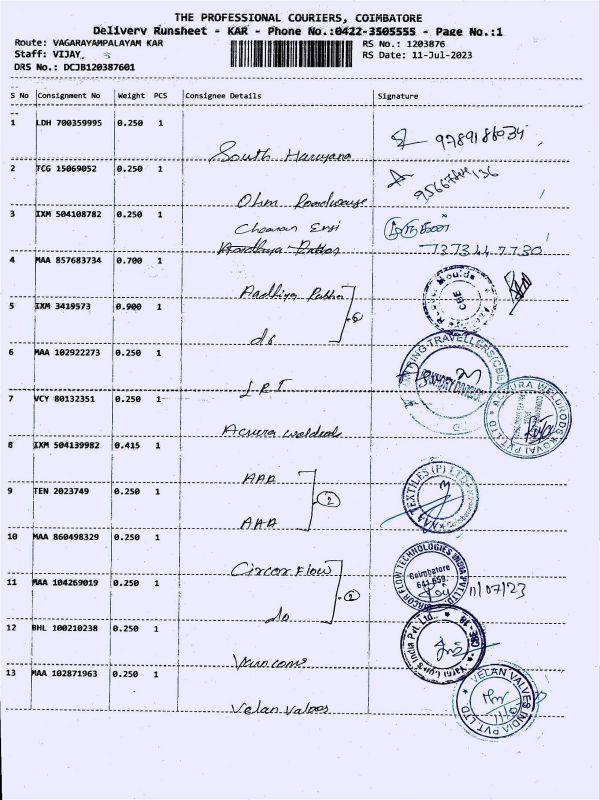 THE PROFESSIONAL COURIERS, COIMBATORE
Delivery Runsheet - KAR - Phone No.:0422-3505555 - Page No.:1
Route: VAGARAYAMPALAYAM KAR
RS No.: 1203876
Staff: VIJAY
RS Date: 11-Jul-2023
DRS No.: DCJB120387601
S No Consignment No Weight PCS Consignee Details Signature
1 LDH 700359995 0.250 1
South Haryana
9789186034
2 TCG 15069052 0.250 1
Ohm
3 IXM 504108782 0.250 1
முருகன்
7373447730
4 MAA 857683734 0.700 1
Aadhiya
5 IXM 3419573 0.900 1
do
6 MAA 102922273 0.250 1
7 VCY 80132351 0.250 1
8 IXM 504139982 0.415 1
9 TEN 2023749 0.250 1
2
10 MAA 860498329 0.250 1
Circor Flow
11/07/23
11 MAA 104269019 0.250 1
2
do
12 BHL 100210238 0.250 1
13 MAA 102871963 0.250 1
Velan Valves
CBE
TRAVELLERS(CBE)
ACCURA WELDRODS KOVAI PVT.LTD
TEXTILES (P) LTD
CIRCOR FLOW TECHNOLOGIES INDIA PVT.LTD
Coimbatore
641 659.
India Pvt. Ltd.
VELAN VALVES INDIA PVT. LTD